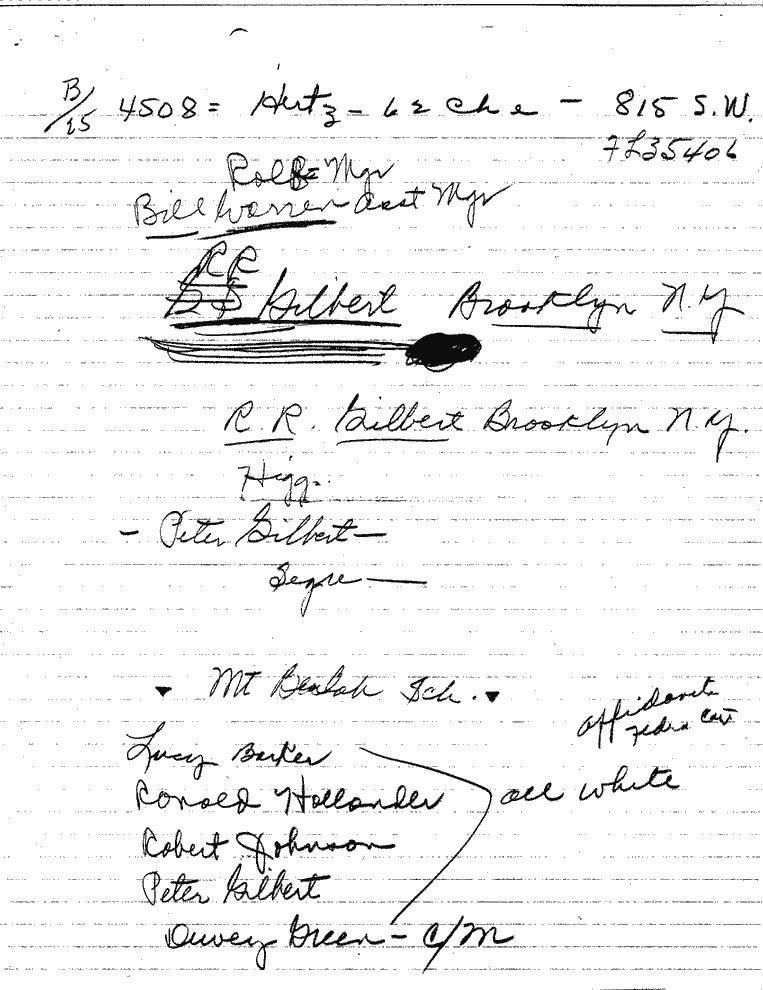 B/25 4508 = Hertz - 62 Che - 815 S.W.
7L35406
Rolf = Mgr
Bill Warren asst Mgr
RR
Gilbert Brooklyn N.Y
R. R. Gilbert Brooklyn N.Y.
Higg..
- Peter Gilbert —
Segre —
Mt Beulah Sch.
affidavits
Cort
Lucy Barker
Ronald Hollander
all white
Robert Johnson
Peter Gilbert
Dewey Green - C/M